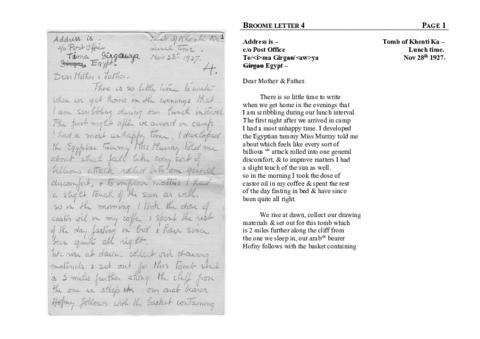 Address is - Tomb of Khenti Ka -
c/o Post Office Lunch time.
Tema Girgawya Nov 28th 1927.
Girgao Egypt. 4.
Dear Mother & Father.
There is so little time to write
when we get home in the evenings that
I am scribbling during our lunch interval.
The first night after we arrived in camp
I had a most unhappy time. I developed
the Egyptian tummy Miss Murray told me
about which feels like every sort of
billious attack rolled into one general
discomfort, & to improve matters I had
a slight touch of the sun as well.
so in the morning I took the dose of
castor oil in my coffee & spent the rest
of the day fasting in bed & have since
been quite all right.
We rise at dawn, collect our drawing
materials & set out for this tomb which
is 2 miles further along the cliff from
the one we sleep in, our arab bearer
Hofny follows with the basket containing
BROOME LETTER 4 PAGE 1
Address is – Tomb of Khenti Ka –
c/o Post Office Lunch time.
Te/<I>ma Girgao/<aw>ya Nov 28th 1927.
Girgao Egypt –
Dear Mother & Father.
There is so little time to write
when we get home in the evenings that
I am scribbling during our lunch interval.
The first night after we arrived in camp
I had a most unhappy time. I developed
the Egyptian tummy Miss Murray told me
about which feels like every sort of
billious attack rolled into one general
discomfort, & to improve matters I had
a slight touch of the sun as well.
so in the morning I took the dose of
castor oil in my coffee & spent the rest
of the day fasting in bed & have since
been quite all right.
We rise at dawn, collect our drawing
materials & set out for this tomb which
is 2 miles further along the cliff from
the one we sleep in, our arab bearer
Hofny follows with the basket containing